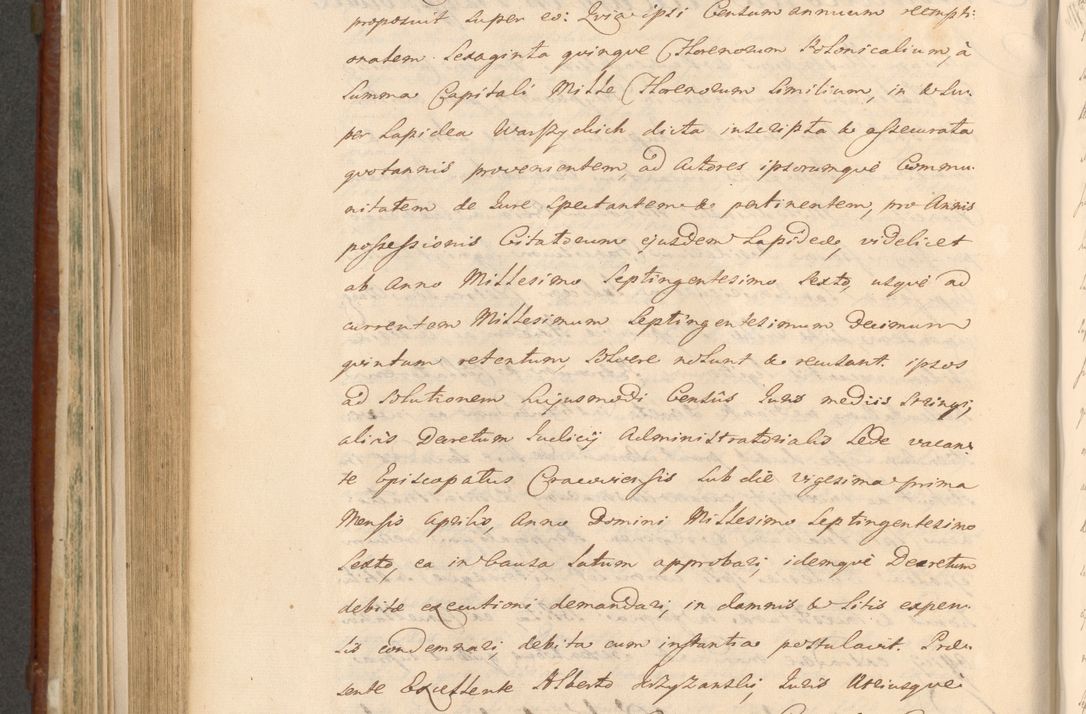 proposuit super eo: Quia ipsi Censum annuum reempti-
onalem Sexaginta quinque Florenorum Polonicalium, à
Summa Capitali Mille Florenorum similium, in & Su-
per Lapidea Warszyckich dicta inscripta & assecurata
quotannis provenientem, ad Actores ipsorumquè Commu-
nitatem de Jure spectantem & pertinentem, pro Annis
possessionis Citatorum ejusdem Lapideæ, videlicet
ab Anno Millesimo Septingentesimo Sexto, usquè ad
currentem Millesimum Septingentesimum Decimum
quintum retentum, solvere nolunt & recusant. ipsos
ad Solutionem hujusmodi Censûs Juris medijs stringi,
aliàs Decretum Judicij Administratorialis Sede vacan-
te Episcopatus Cracoviensis sub die vigesima prima
Mensis Aprilis, Anno Domini Millesimo Septingentesimo
Sexto, ea in Causa latum approbari, idemquè Decretum
debitæ executioni demandari, in damnis & Litis expen-
sis condemnari, debita cum instantia postulavit. Præ-
sente Excellente Alberto Krzyżanski, Juris Utriusquè